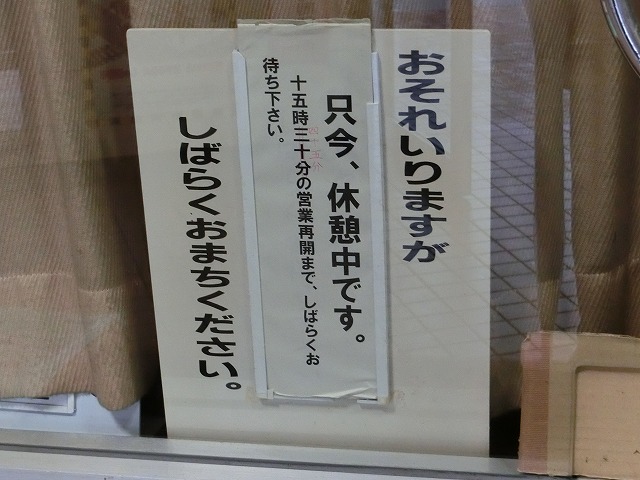 おそれいりますが
只今、休憩中です。
十五時三十分の営業再開まで、しばらくお
待ち下さい。
しばらくおまちください。